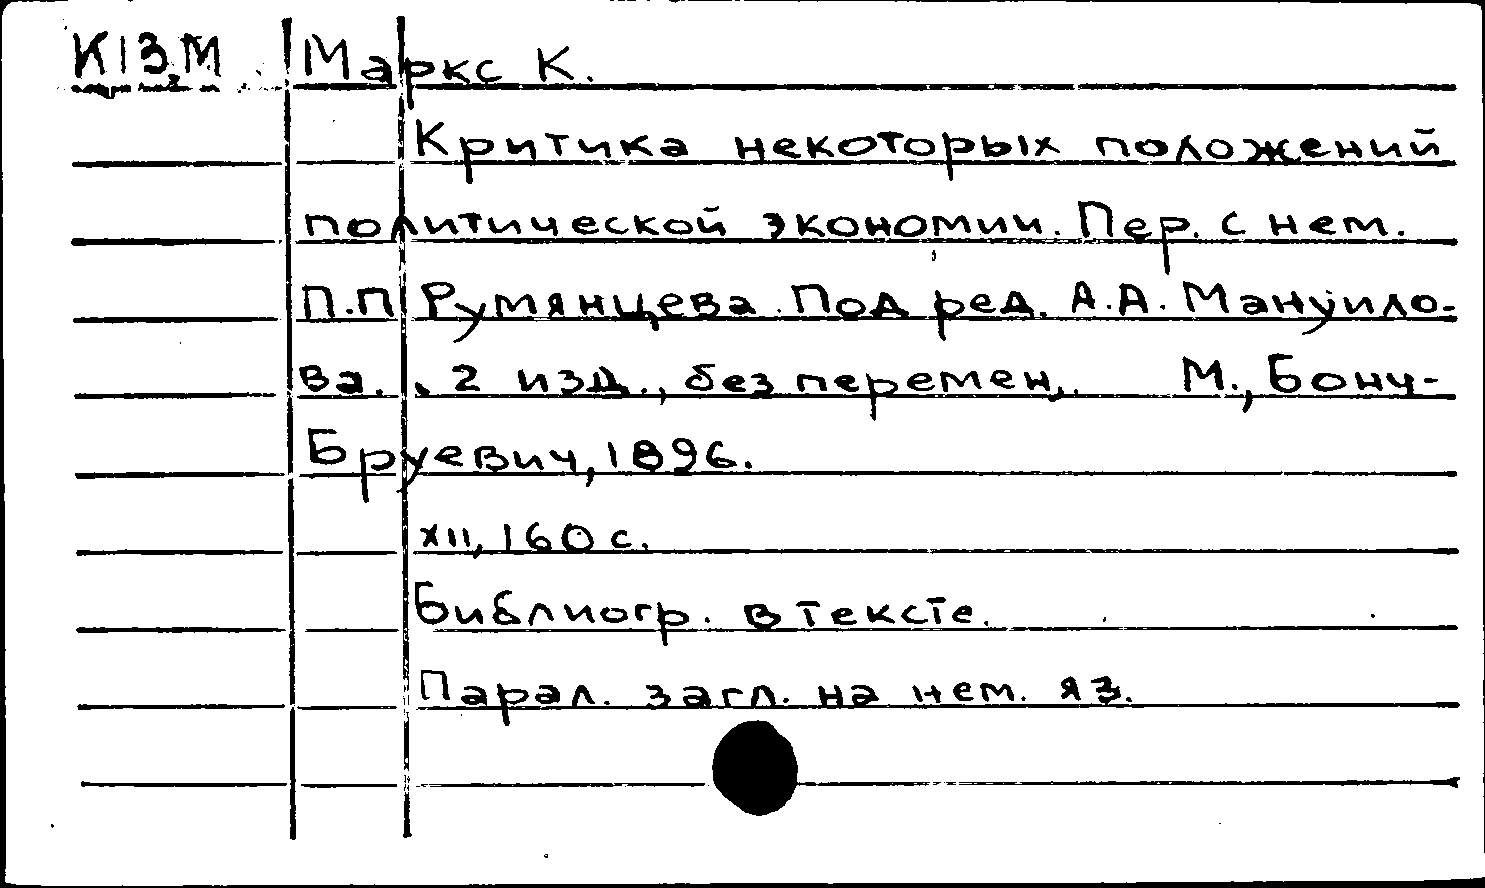 К13М Маркс К.
Критика некоторых положений
политической экономии. Пер. с нем.
П.П Румянцева. Под ред. А.А. Мануйло-
ва., 2 изд., без перемен,. М., Бонч-
Бруевич, 1896.
XII, 160 с.
Библиогр. в тексте.
Парал. загл. на нем. яз.